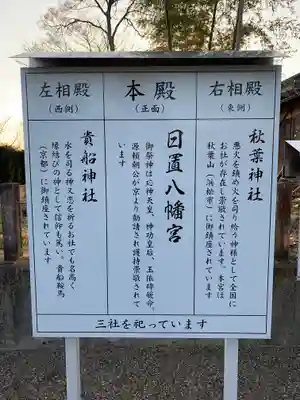 右相殿
(東側)
秋葉神社
悪火を鎮め火を司り給う神様として全国に
お社が存在し崇敬されています。本宮は
秋葉山(浜松市)に御鎮座されています
本殿
(正面)
日置八幡宮
御祭神は応神天皇、神功皇后、玉依碑姫命。
源頼朝公が京より勧請され護持崇敬されて
います
左相殿
(西側)
貴船神社
水を司る神、又恋を祈るお社でも名高く
縁結びの神として信仰も篤い。貴船鞍馬
(京都)に御鎮座されています
三社を祀っています